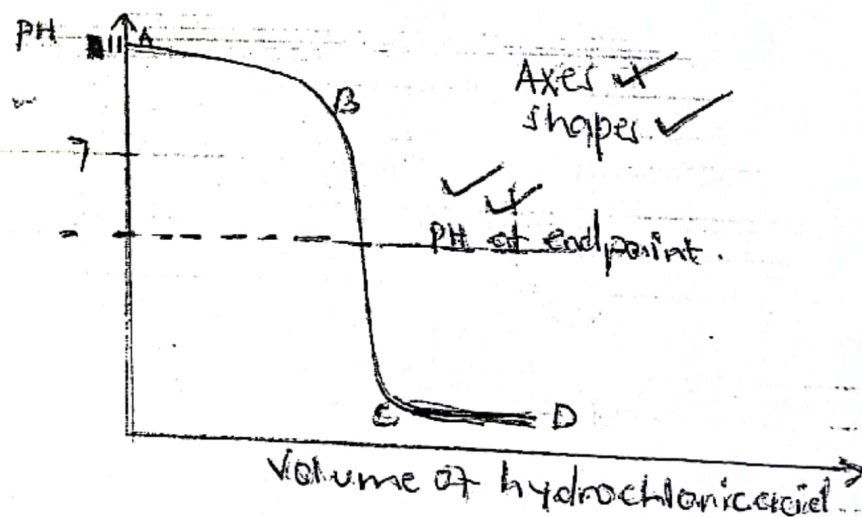 PH
11 A
Axes ✓
shapes ✓
B
7
✓ ✓
PH at endpoint.
C
D
Volume of hydrochloric acid